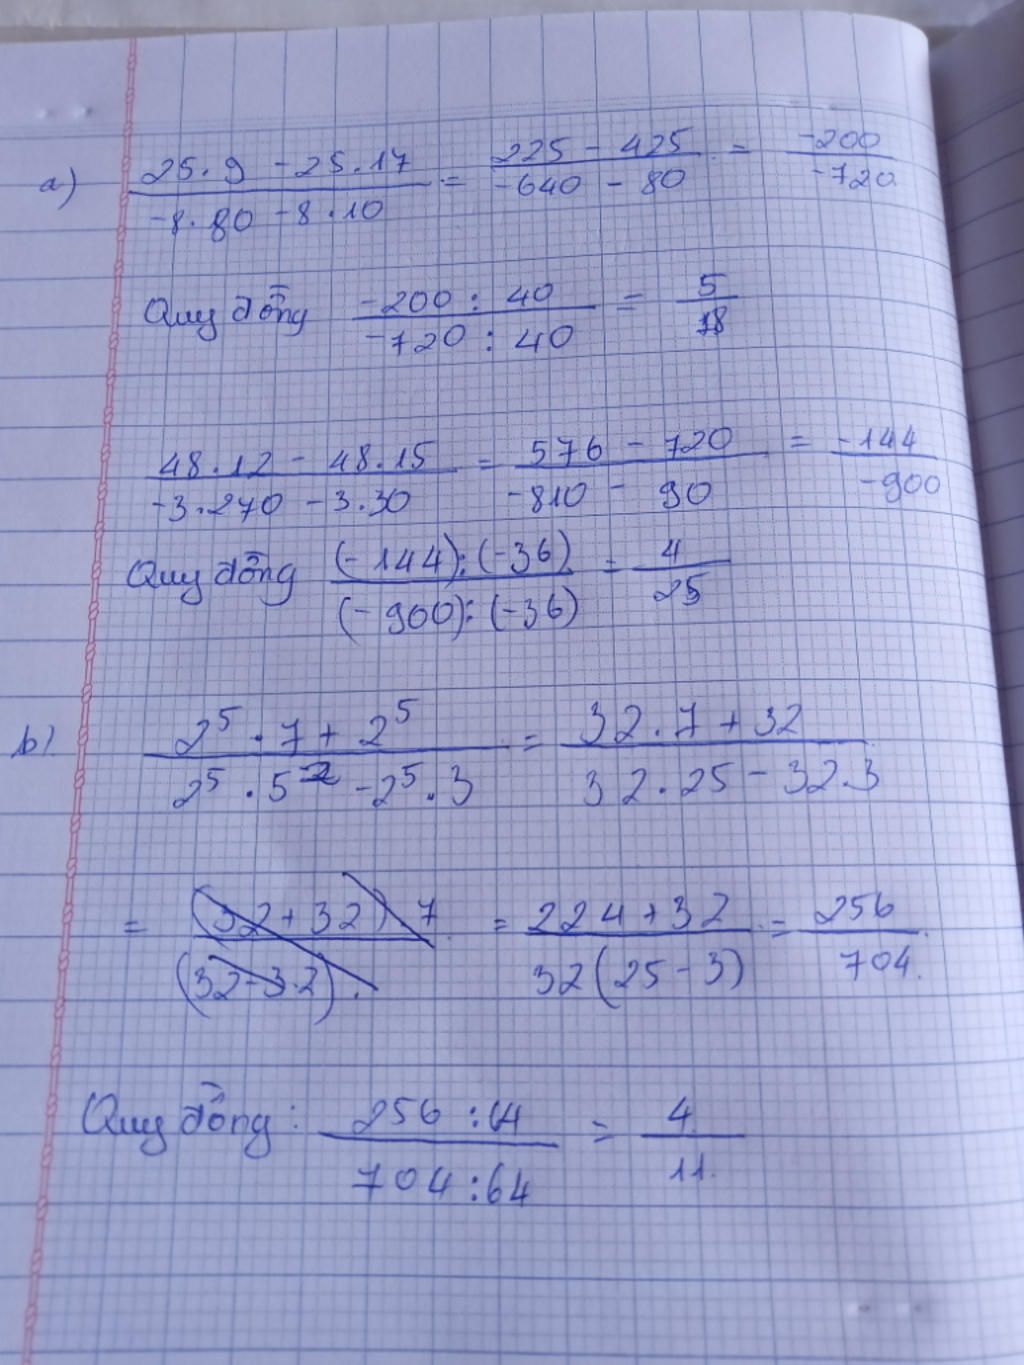 a) 25.9 - 25.17 / -8.80 - 8.10 = 225 - 425 / -640 - 80 = -200 / -720
Quy đồng -200 : 40 / -720 : 40 = 5 / 18
48.12 - 48.15 / -3.270 - 3.30 = 576 - 720 / -810 - 90 = -144 / -900
Quy đồng (-144):(-36) / (-900):(-36) = 4 / 25
b) 2⁵.7 + 2⁵ / 2⁵.5² - 2⁵.3 = 32.7 + 32 / 32.25 - 32.3
= (32 + 32) 7 / (32 - 3.2). = 224 + 32 / 32(25 - 3) = 256 / 704.
Quy đồng: 256 :64 / 704 :64 = 4 / 11.